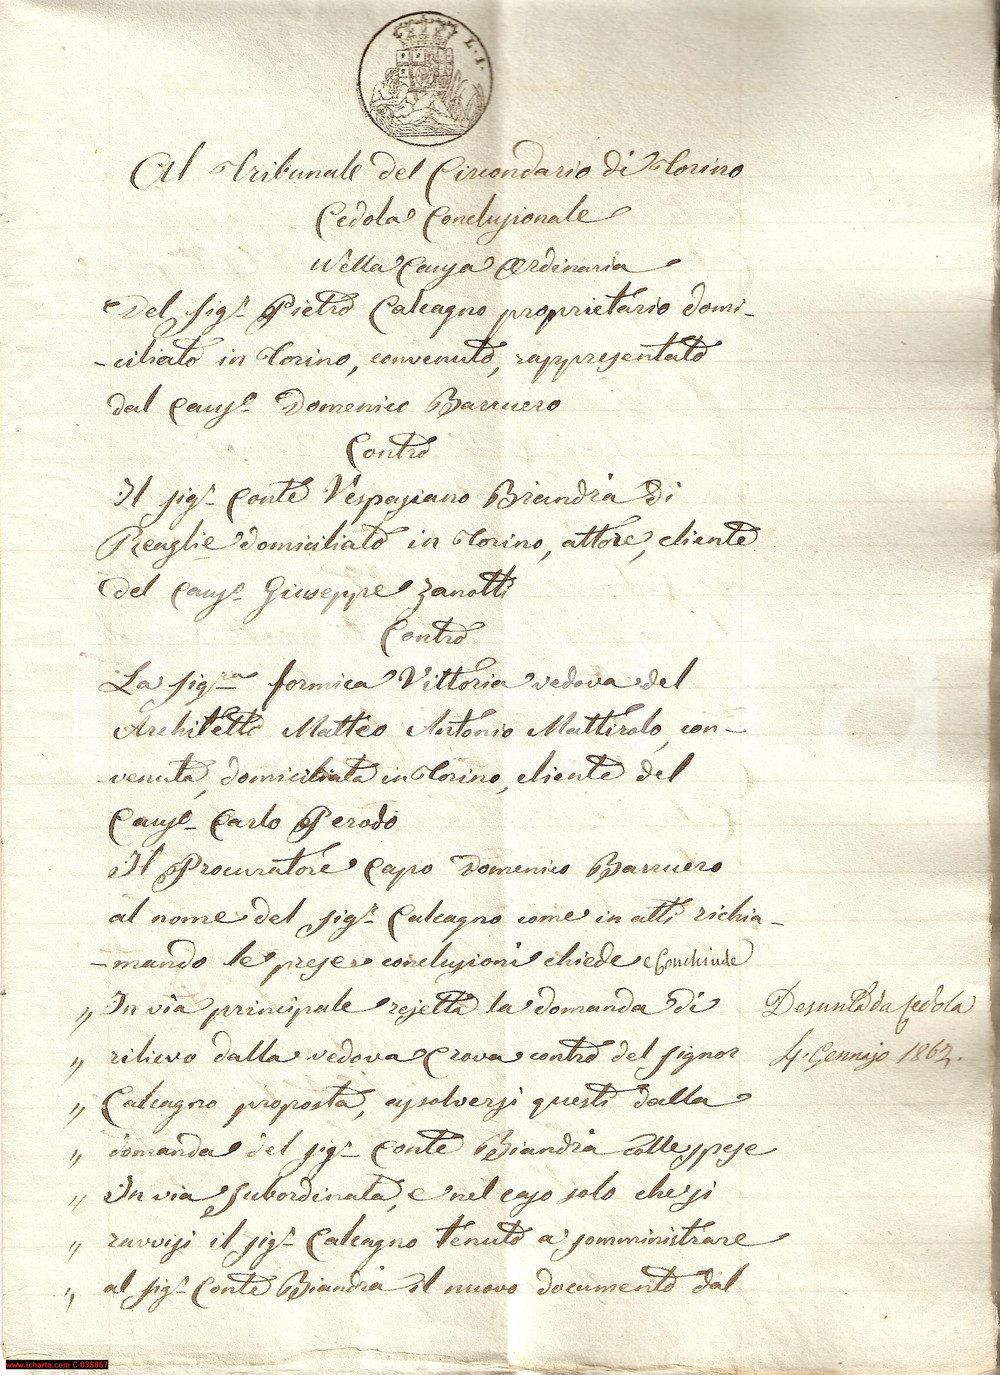 L. I.
Al Tribunale del Circondario di Torino
Cedola Conclusionale
Nella Causa Ordinaria
Del sig.r Pietro Calcagno proprietario domi-
-ciliato in Torino, convenuto, rappresentato
dal Caus.o Domenico Barruero
Contro
Il sig.r Conte Vespasiano Biandrà di
Reaglie domiciliato in Torino, attore, cliente
del Caus.o Giuseppe Zanotti
Contro
La sig.ra formica Vittoria vedova del
Architetto Matteo Antonio Mattirolo, con-
-venuta, domiciliata in Torino, cliente del
Caus.o Carlo Perodo
Il Procuratore Capo Domenico Barruero
al nome del sig.r Calcagno come in atti richia-
-mando le prese conclusioni chiede e Conchiude
„ In via principale rejetta la domanda di
„ rilievo dalla vedova Crova contro del signor
„ Calcagno proposta, assolversi questi dalla
„ domanda del sig.r Conte Biandrà colle spese
„ In via subordinata, e nel caso solo che si
„ ravvisi il sig.r Calcagno tenuto a somministrare
„ al sig.r Conte Biandrà il nuovo documento dal
Desunta da Cedola
4. Gennajo 1862.
www.icharta.com C-036867